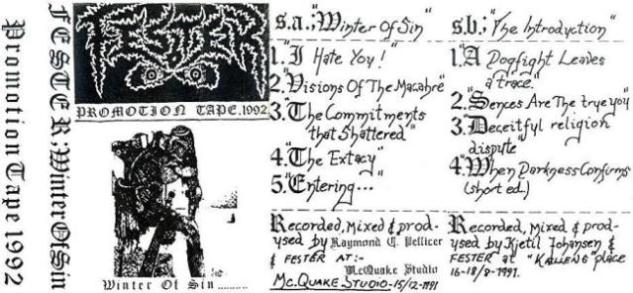 Promotion Tape 1992
FESTER; Winter Of Sin
FESTER
PROMOTION TAPE.1992
Winter Of Sin.........
s.a.; "Winter Of Sin"
1. "I Hate You!"
2. "Visions Of The Macabre"
3. "The Commitments
that Shattered"
4. "The Extacy"
5. "Entering..."
Recorded, Mixed & prod-
used by Raymond C. Pellicer
& FESTER AT:-
McQuake Studio
Mc.QUAKE STUDIO-15/12-1991
s.b.; "The Introduction"
1. "A Dogfight Leaves
a trace."
2. "Sences Are The true you"
3. "Deceitful religion
dispute"
4. "When Darkness Confirms"
(short ed.)
Recorded, Mixed & prod-
used by Kjetil Johansen &
FESTER at "KALIENS" place
16-18/8-1991.